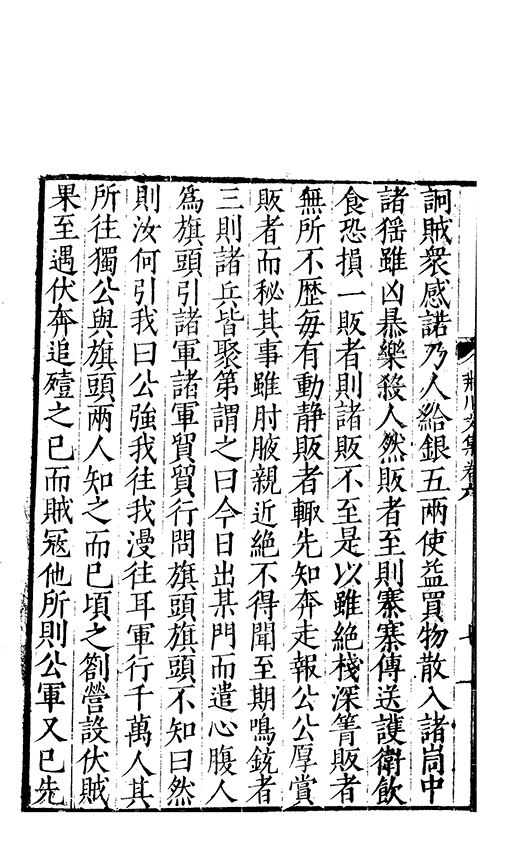 詗賊衆感諾乃人給銀五兩使益買物散入諸峝中
諸猺雖凶暴樂殺人然販者至則寨寨傳送護衛飲
食恐損一販者則諸販不至是以雖絶棧深箐販者
無所不歷每有動靜販者輙先知奔走報公公厚賞
販者而秘其事雖肘腋親近絶不得聞至期鳴銃者
三則諸兵皆聚第謂之曰今日出某門而遣心腹人
爲旗頭引諸軍諸軍貿貿行問旗頭旗頭不知曰然
則汝何引我曰公強我往我漫往耳軍行千萬人其
所往獨公與旗頭兩人知之而已頃之劄營設伏賊
果至遇伏奔追殪之已而賊冦他所則公軍又已先
荊川文集卷